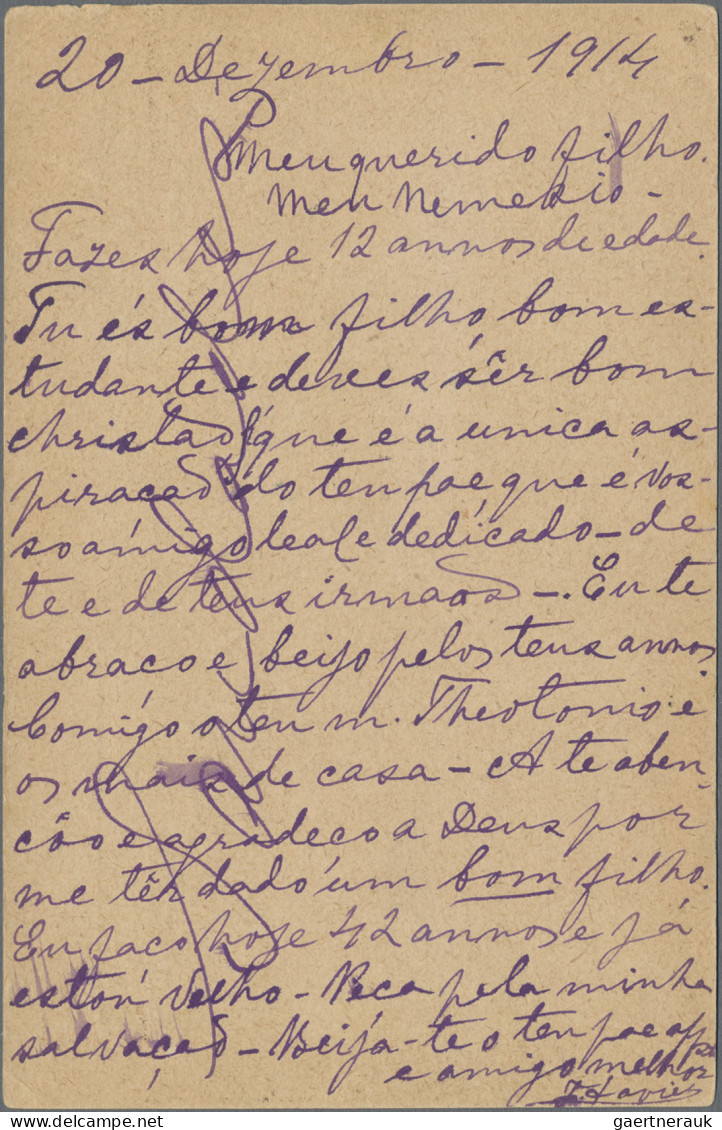 20 - Dezembro - 1914
Meu querido filho.
Meu Nemesio -
Fazes hoje 12 annos de edade.
Tu és bom filho, bom es-
tudante e deves sêr bom
christão que é a unica as-
piração do teu pae que é vos-
so amigo leal e dedicado - de
te e de teus irmaos -. Eu te
abraco e beijo pelos teus annos
Comigo o teu m. Theotonio e
os mais de casa - A te aben-
cõo e agradeco a Deus por
me têr dado um bom filho.
Eu faco hoje 42 annos e já
estou velho - Peca pela minha
salvação - Beija-te o teu pae
e amigo melhor
J. Xavier
gaertnerauk